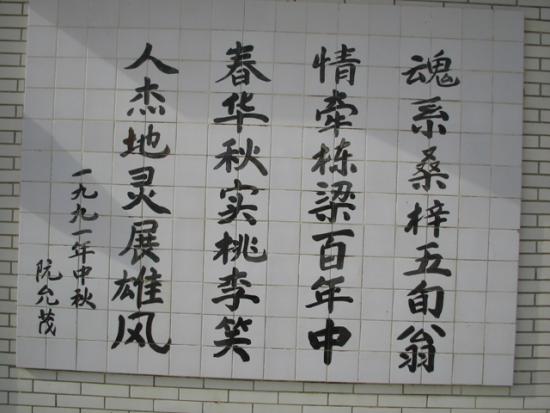 魂系桑梓五旬翁
情牵栋梁百年中
春华秋实桃李笑
人杰地灵展雄风
一九九一年中秋
阮允茂